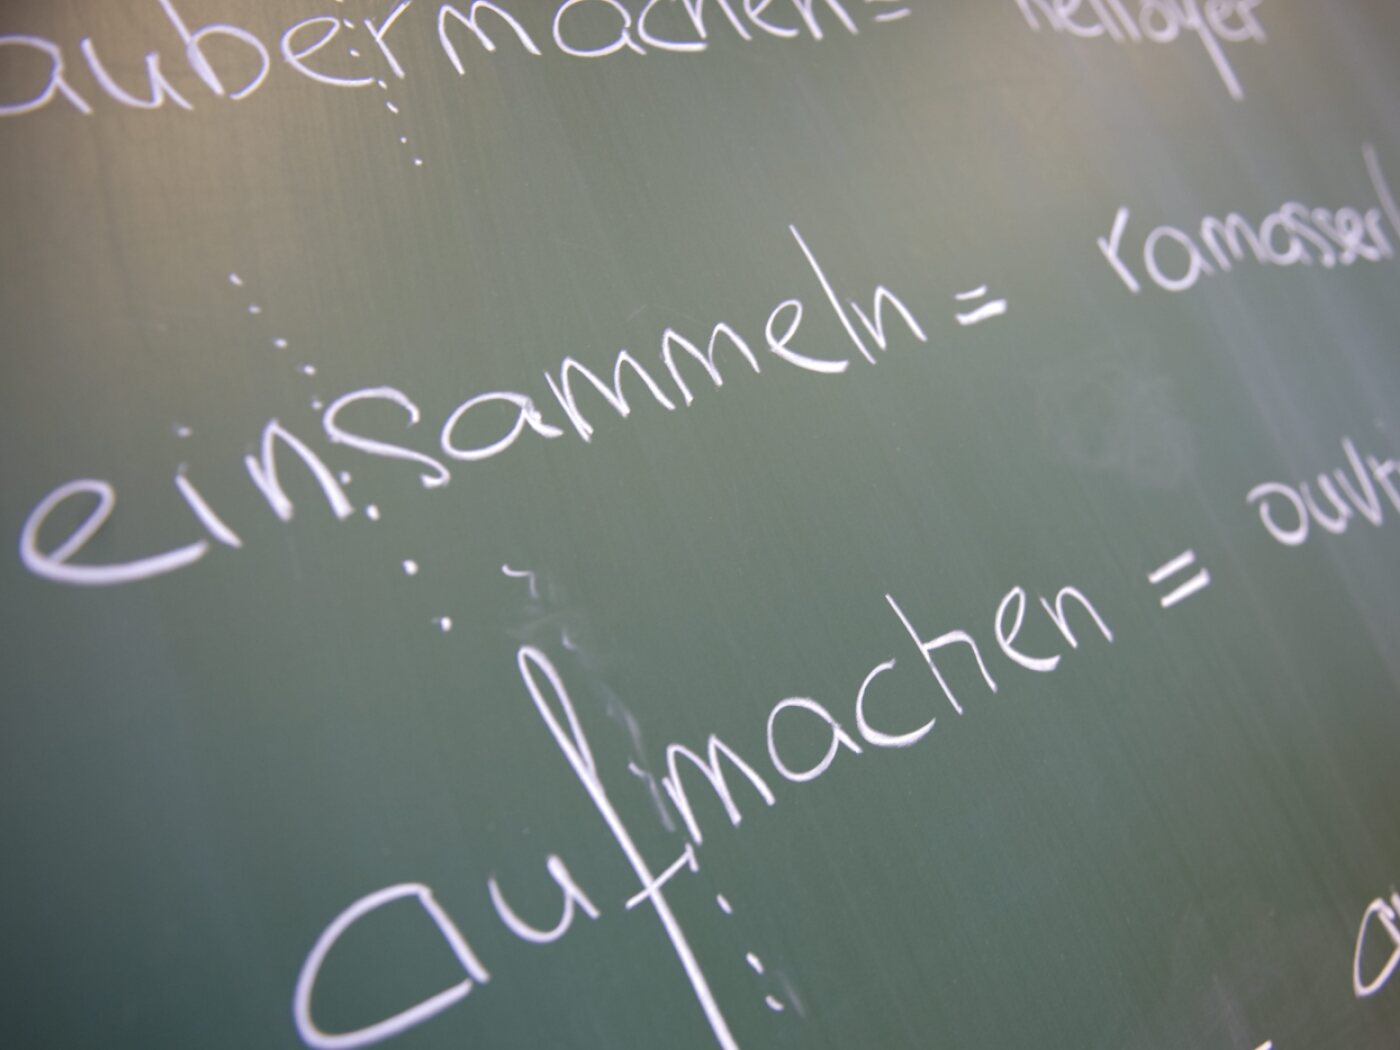 aubermachen= nettoyer
einsammeln= ramasser/
aufmachen = ouvr